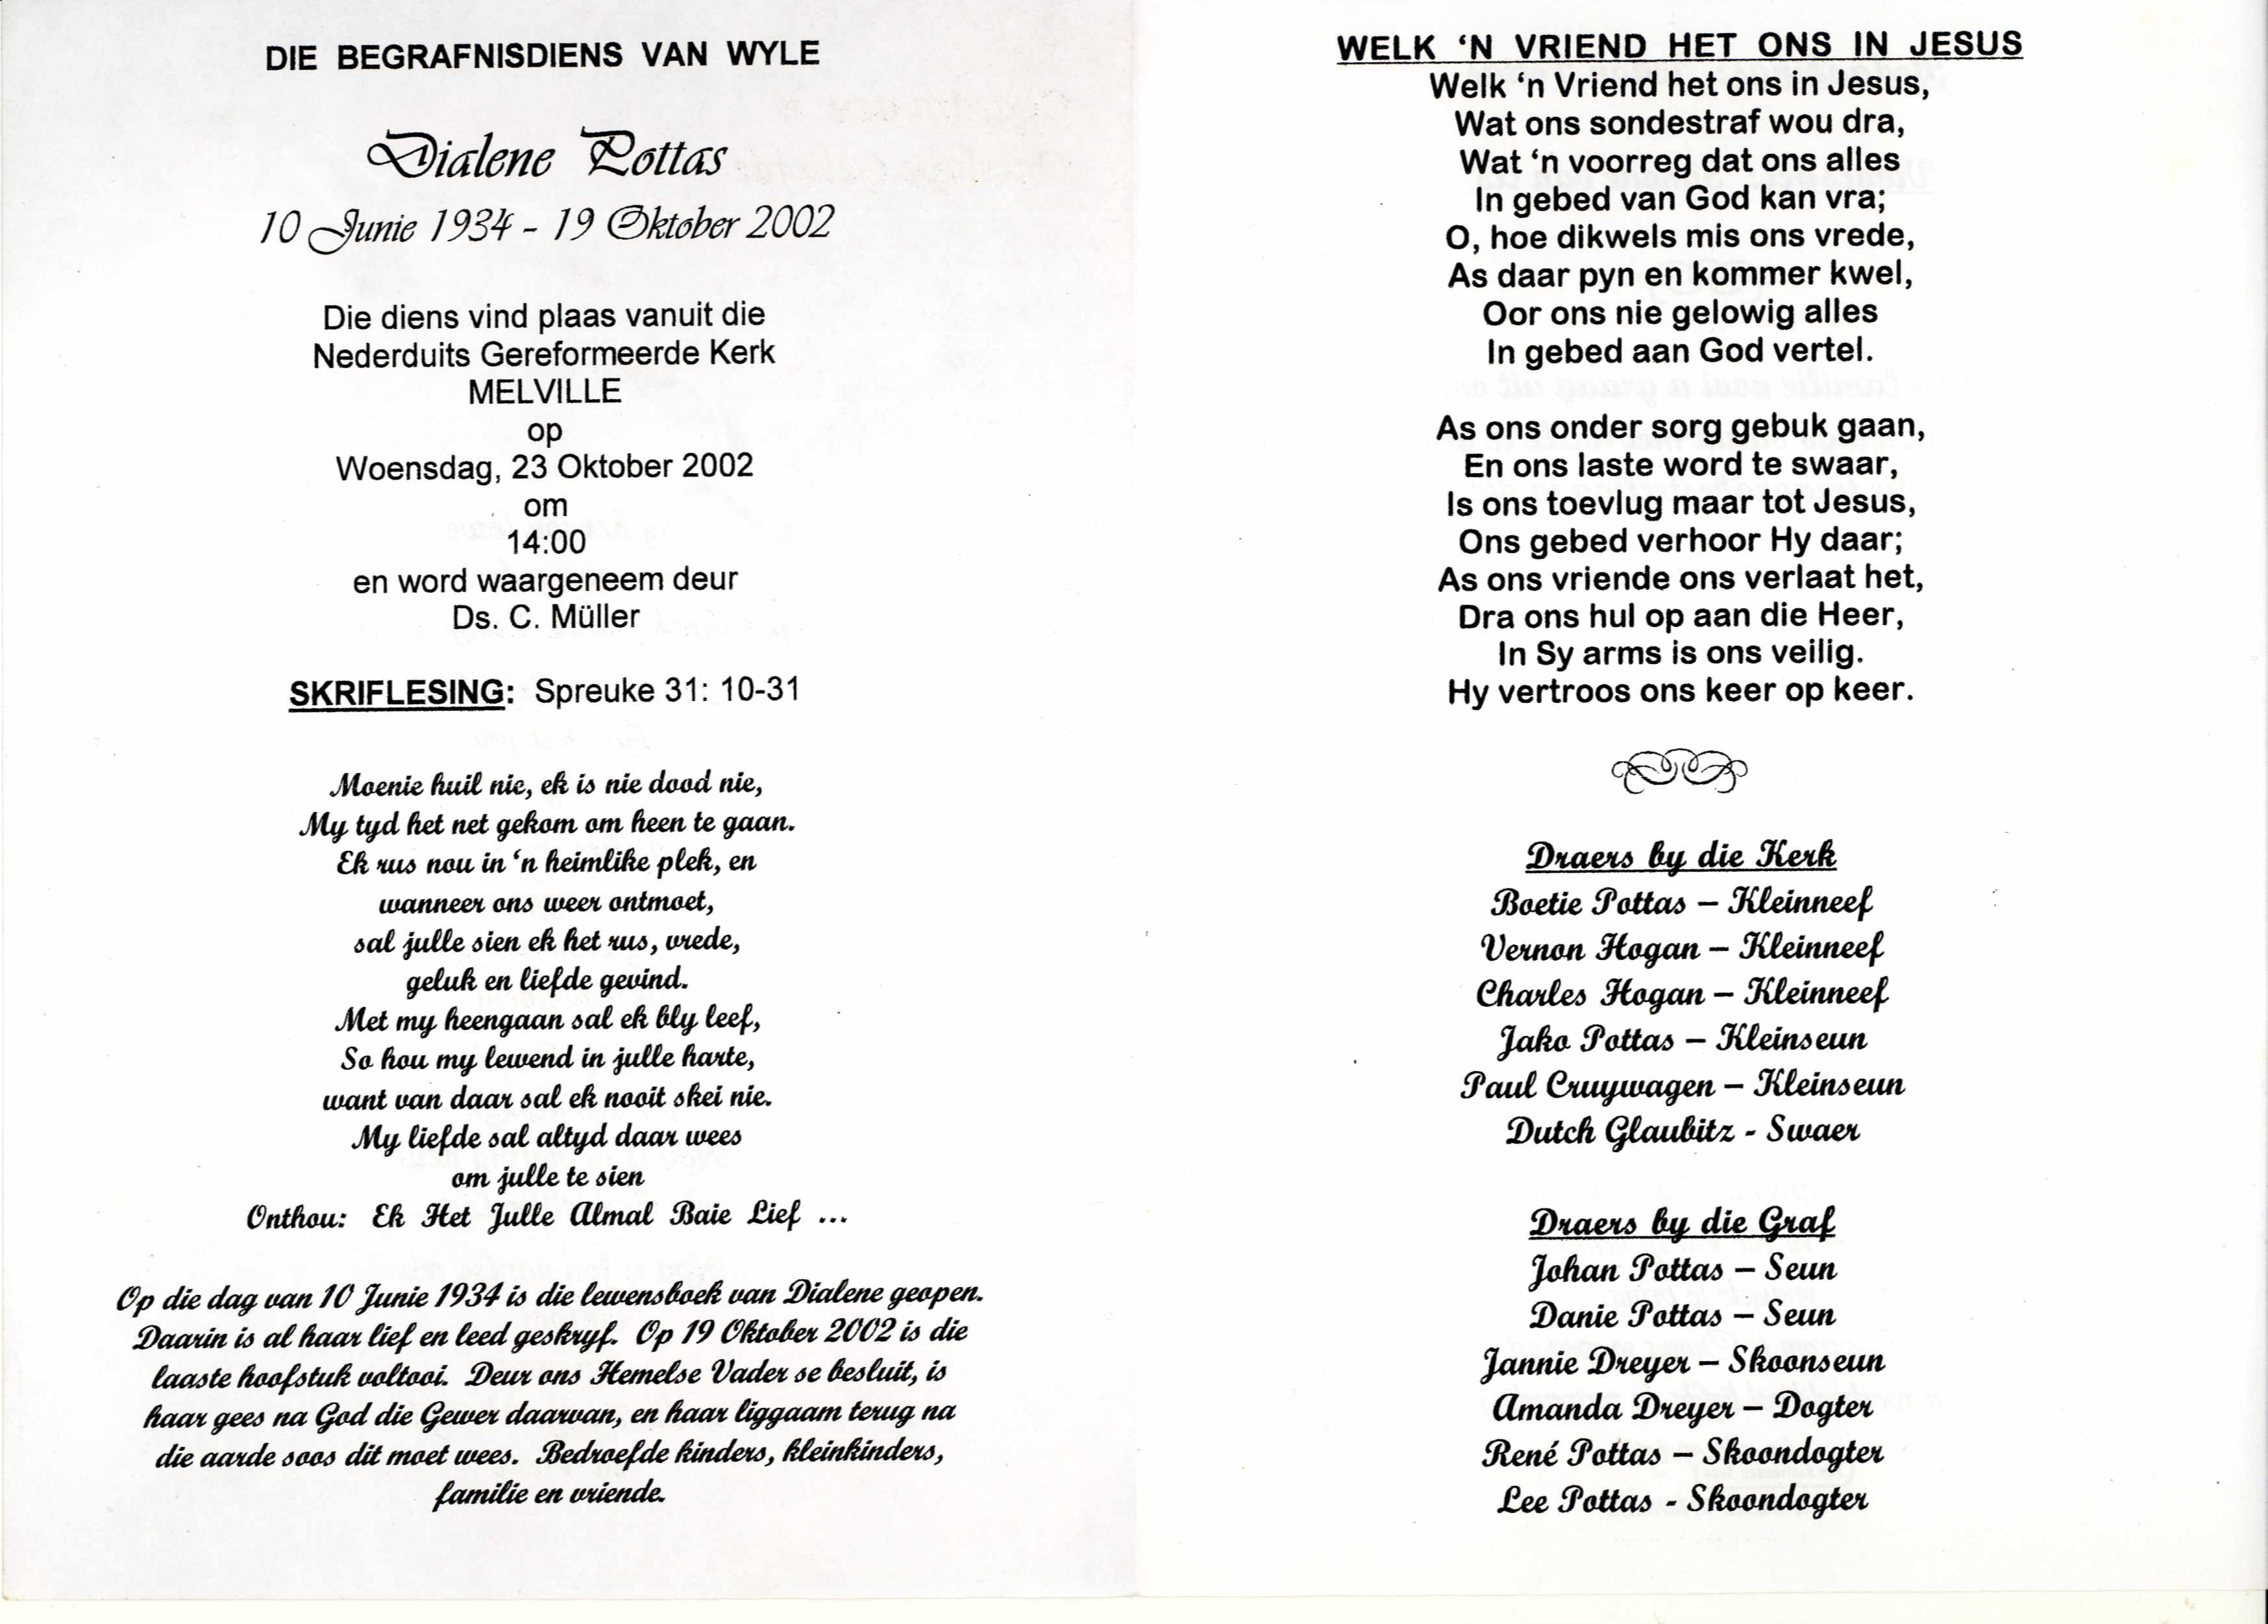 DIE BEGRAFNISDIENS VAN WYLE
Dialene Pottas
10 Junie 1934 - 19 Oktober 2002
Die diens vind plaas vanuit die
Nederduits Gereformeerde Kerk
MELVILLE
op
Woensdag, 23 Oktober 2002
om
14:00
en word waargeneem deur
Ds. C. Müller
SKRIFLESING: Spreuke 31: 10-31
Moenie huil nie, ek is nie dood nie,
My tyd het net gekom om heen te gaan.
Ek rus nou in ‘n heimlike plek, en
wanneer ons weer ontmoet,
sal julle sien ek het rus, vrede,
geluk en liefde gevind.
Met my heengaan sal ek bly leef,
So hou my lewend in julle harte,
want van daar sal ek nooit skei nie.
My liefde sal altyd daar wees
om julle te sien
Onthou: Ek Het Julle Almal Baie Lief ...
Op die dag van 10 Junie 1934 is die lewensboek van Dialene geopen.
Daarin is al haar lief en leed geskryf. Op 19 Oktober 2002 is die
laaste hoofstuk voltooi. Deur ons Hemelse Vader se besluit, is
haar gees na God die Gewer daarvan, en haar liggaam terug na
die aarde soos dit moet wees. Bedroefde kinders, kleinkinders,
familie en vriende.
WELK ‘N VRIEND HET ONS IN JESUS
Welk ‘n Vriend het ons in Jesus,
Wat ons sondestraf wou dra,
Wat ‘n voorreg dat ons alles
In gebed van God kan vra;
O, hoe dikwels mis ons vrede,
As daar pyn en kommer kwel,
Oor ons nie gelowig alles
In gebed aan God vertel.
As ons onder sorg gebuk gaan,
En ons laste word te swaar,
Is ons toevlug maar tot Jesus,
Ons gebed verhoor Hy daar;
As ons vriende ons verlaat het,
Dra ons hul op aan die Heer,
In Sy arms is ons veilig.
Hy vertroos ons keer op keer.
Draers by die Kerk
Boetie Pottas – Kleinneef
Vernon Hogan – Kleinneef
Charles Hogan – Kleinneef
Jako Pottas – Kleinseun
Paul Cruywagen – Kleinseun
Dutch Glaubitz - Swaer
Draers by die Graf
Johan Pottas – Seun
Danie Pottas – Seun
Jannie Dreyer – Skoonseun
Amanda Dreyer – Dogter
René Pottas – Skoondogter
Lee Pottas - Skoondogter